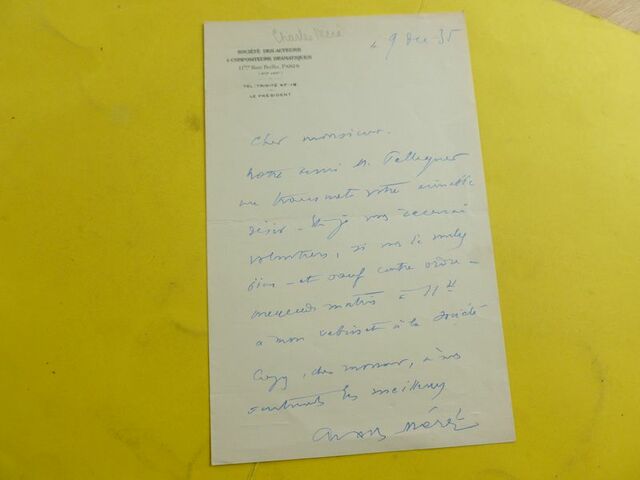 Charles Méré
SOCIÉTÉ DES AUTEURS
& COMPOSITEURS DRAMATIQUES
11bis Rue Ballu, PARIS
TEL. TRINITÉ 47-18
LE PRÉSIDENT
9 Dec. 35
Cher monsieur,
notre ami M.
me transmet votre aimable
désir - Et je vous recevrai
volontiers, si
- et sauf contre ordre -
mercredi matin à 11 H
à mon cabinet à la Société
Croyez, cher monsieur, à mes
sentiments les meilleurs
Charles Méré